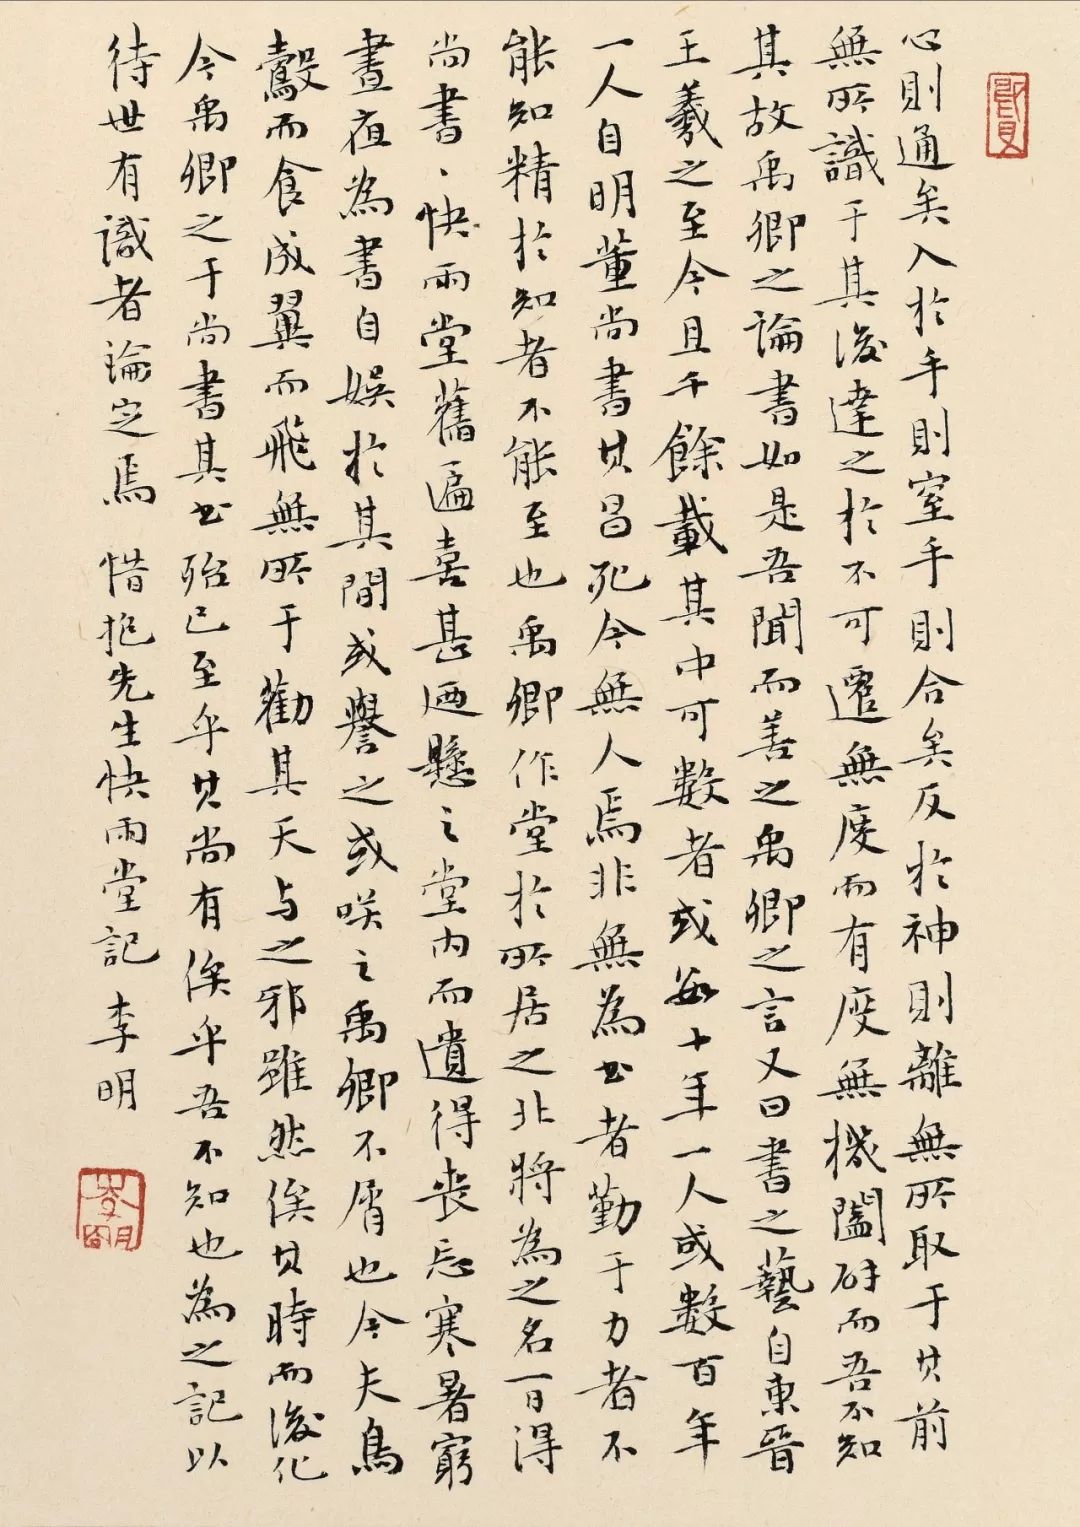 心則通矣入於手則窒手則合矣反於神則離無所取于其前
無所識于其後達之於不可遷無度而有度無機闔辟而吾不知
其故禹卿之論書如是吾聞而善之禹卿之言又曰書之藝自東晉
王羲之至今且千餘載其中可數者或數十年一人或數百年
一人自明董尚書其昌死今無人焉非無為書者勤于力者不
能知精於知者不能至也禹卿作堂於所居之北將為之名一日得
尚書、快雨堂舊匾喜甚迺懸之堂內而遺得喪忘寒暑窮
晝夜為書自娛於其間或譽之或咲之禹卿不屑也今夫鳥
鷇而食成翼而飛無所于勸其天与之邪雖然俟其時而後化
今禹卿之于尚書其書殆已至乎其尚有俟乎吾不知也為之記以
待世有識者論定焉 惜抱先生快雨堂記 李明
李明